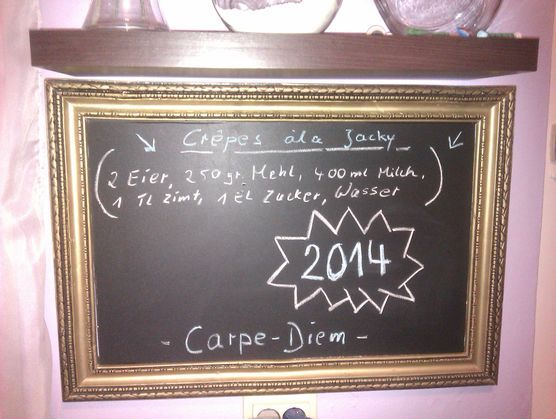 Crêpes àla Jacky
(2 Eier, 250 gr. Mehl, 400 ml Milch,
1 TL Zimt, 1 EL Zucker, Wasser)
2014
- Carpe-Diem -